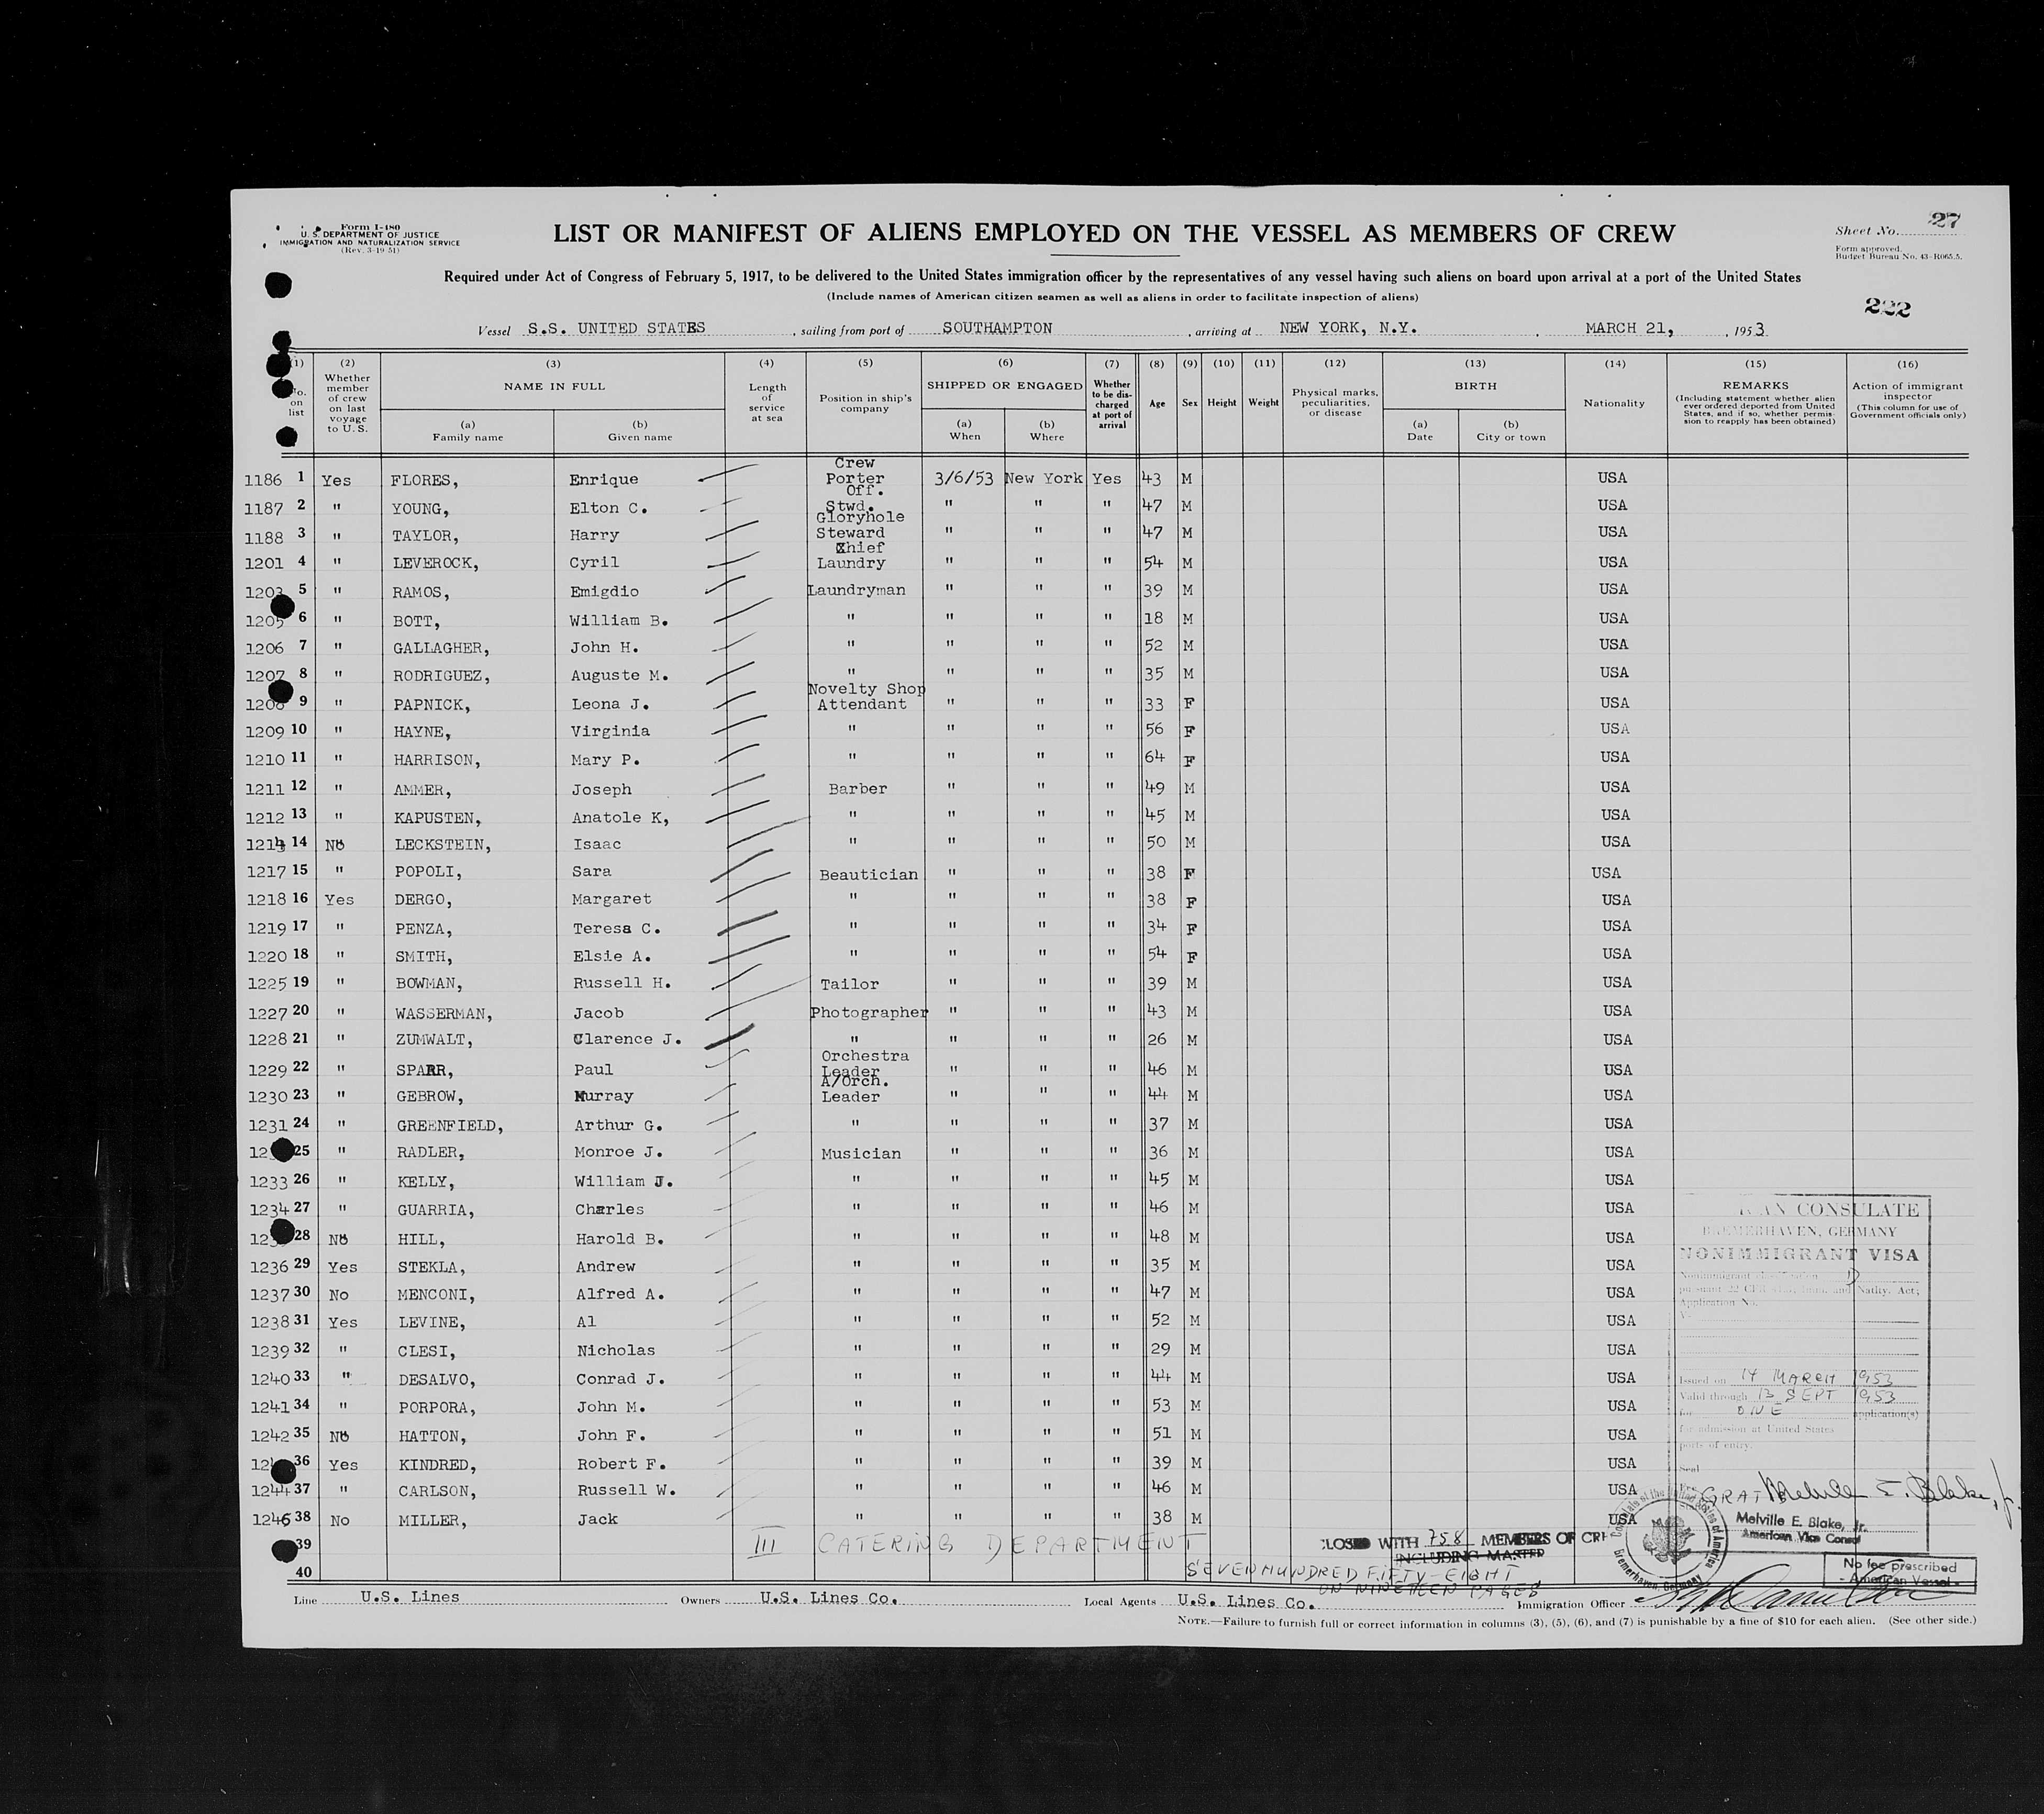 Form I-480
U. S. DEPARTMENT OF JUSTICE
IMMIGRATION AND NATURALIZATION SERVICE
(Rev. 3-19-51)
LIST OR MANIFEST OF ALIENS EMPLOYED ON THE VESSEL AS MEMBERS OF CREW
Sheet No. 27
Form approved.
Budget Bureau No. 43-R065.5.
Required under Act of Congress of February 5, 1917, to be delivered to the United States immigration officer by the representatives of any vessel having such aliens on board upon arrival at a port of the United States
(Include names of American citizen seamen as well as aliens in order to facilitate inspection of aliens)
222
Vessel S.S. UNITED STATES, sailing from port of SOUTHAMPTON, arriving at NEW YORK, N.Y., MARCH 21, 1953
(1) (2) (3) (4) (5) (6) (7) (8) (9) (10) (11) (12) (13) (14) (15) (16)
No. on list
Whether member of crew on last voyage to U. S.
NAME IN FULL
(a) Family name
(b) Given name
Length of service at sea
Position in ship's company
SHIPPED OR ENGAGED
(a) When
(b) Where
Whether to be discharged at port of arrival
Age
Sex
Height
Weight
Physical marks, peculiarities, or disease
BIRTH
(a) Date
(b) City or town
Nationality
REMARKS
(Including statement whether alien ever ordered deported from United States, and if so, whether permission to reapply has been obtained)
Action of immigrant inspector
(This column for use of Government officials only)
1186 1 Yes FLORES, Enrique Crew Porter 3/6/53 New York Yes 43 M USA
1187 2 " YOUNG, Elton C. Off. Stwd. " " " 47 M USA
1188 3 " TAYLOR, Harry Gloryhole Steward " " " 47 M USA
1201 4 " LEVEROCK, Cyril Chief Laundry " " " 54 M USA
1203 5 " RAMOS, Emigdio Laundryman " " " 39 M USA
1205 6 " BOTT, William B. " " " " 18 M USA
1206 7 " GALLAGHER, John H. " " " " 52 M USA
1207 8 " RODRIGUEZ, Auguste M. " " " " 35 M USA
1208 9 " PAPNICK, Leona J. Novelty Shop Attendant " " " 33 F USA
1209 10 " HAYNE, Virginia " " " " 56 F USA
1210 11 " HARRISON, Mary P. " " " " 64 F USA
1211 12 " AMMER, Joseph Barber " " " 49 M USA
1212 13 " KAPUSTEN, Anatole K, " " " " 45 M USA
1214 14 No LECKSTEIN, Isaac " " " " 50 M USA
1217 15 " POPOLI, Sara Beautician " " " 38 F USA
1218 16 Yes DERGO, Margaret " " " " 38 F USA
1219 17 " PENZA, Teresa C. " " " " 34 F USA
1220 18 " SMITH, Elsie A. " " " " 54 F USA
1225 19 " BOWMAN, Russell H. Tailor " " " 39 M USA
1227 20 " WASSERMAN, Jacob Photographer " " " 43 M USA
1228 21 " ZUMWALT, Clarence J. " " " " 26 M USA
1229 22 " SPARR, Paul Orchestra Leader " " " 46 M USA
1230 23 " GEBROW, Murray A/Orch. Leader " " " 44 M USA
1231 24 " GREENFIELD, Arthur G. " " " " 37 M USA
25 " RADLER, Monroe J. Musician " " " 36 M USA
1233 26 " KELLY, William J. " " " " 45 M USA
1234 27 " GUARRIA, Charles " " " " 46 M USA
28 No HILL, Harold B. " " " " 48 M USA
1236 29 Yes STEKLA, Andrew " " " " 35 M USA
1237 30 No MENCONI, Alfred A. " " " " 47 M USA
1238 31 Yes LEVINE, Al " " " " 52 M USA
1239 32 " CLESI, Nicholas " " " " 29 M USA
1240 33 " DESALVO, Conrad J. " " " " 44 M USA
1241 34 " PORPORA, John M. " " " " 53 M USA
1242 35 No HATTON, John F. " " " " 51 M USA
36 Yes KINDRED, Robert F. " " " " 39 M USA
1244 37 " CARLSON, Russell W. " " " " 46 M USA
1246 38 No MILLER, Jack " " " " 38 M USA
39
40
III CATERING DEPARTMENT
CLOSED WITH 758 MEMBERS OF CRE
INCLUDING MASTER
SEVENHUNDRED FIFTY-EIGHT
ON NINETEEN PAGES
CONSULATE
BREMERHAVEN, GERMANY
NONIMMIGRANT VISA
Nonimmigrant classification D
Imm. and Natlty. Act;
Application No.
Issued on 14 MARCH 1953
Valid through 13 SEPT 1953
for ONE application(s)
for admission at United States
ports of entry.
Seal
GRATIS
Melville E. Blake, Jr.
Melville E. Blake, Jr.
American Vice Consul
Consulate of the United States of America
Bremerhaven, Germany
No fee prescribed
- American Vessel -
Line U.S. Lines Owners U.S. Lines Co. Local Agents U.S. Lines Co. Immigration Officer
NOTE.—Failure to furnish full or correct information in columns (3), (5), (6), and (7) is punishable by a fine of $10 for each alien. (See other side.)